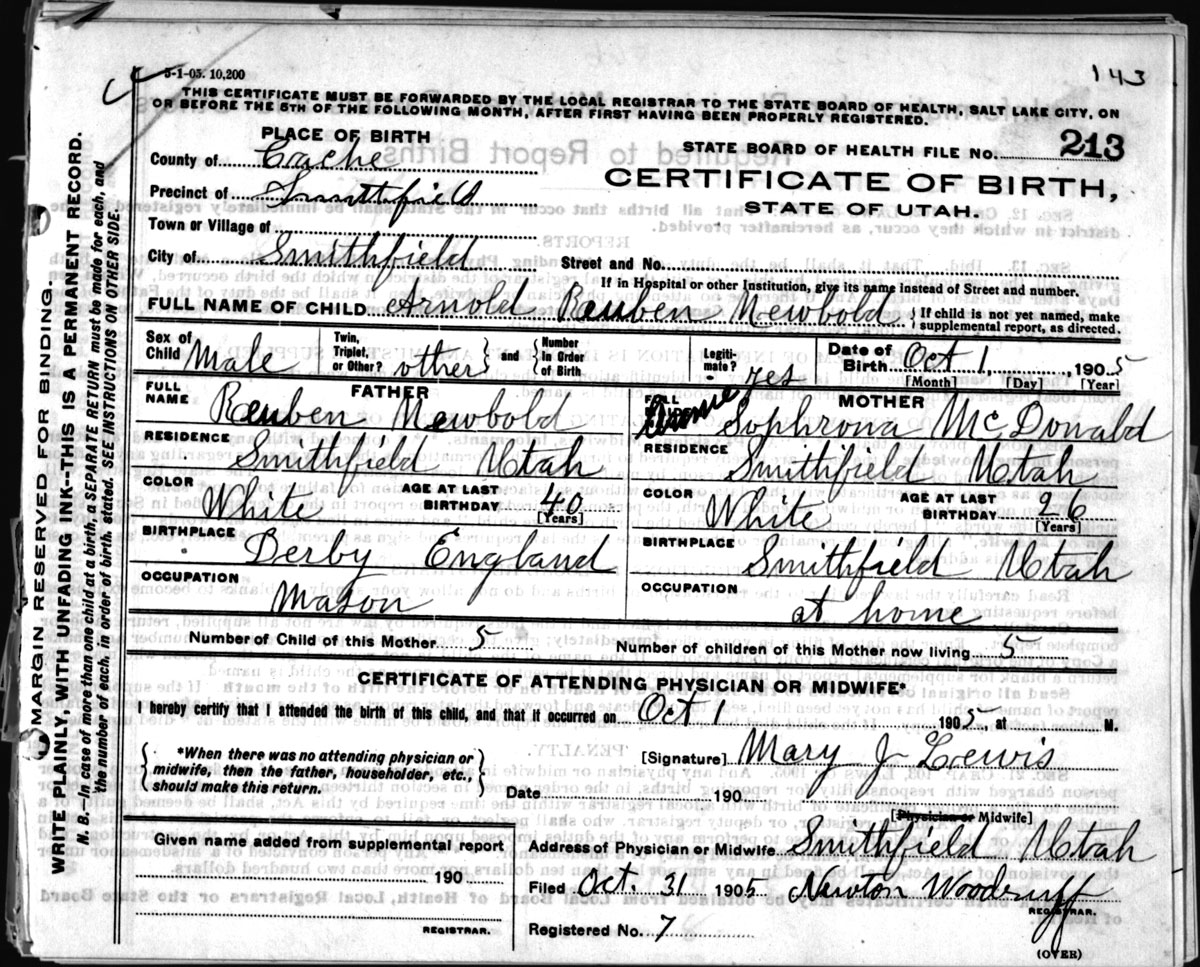 143
5-1-05. 10,200
THIS CERTIFICATE MUST BE FORWARDED BY THE LOCAL REGISTRAR TO THE STATE BOARD OF HEALTH, SALT LAKE CITY, ON
OR BEFORE THE 5TH OF THE FOLLOWING MONTH, AFTER FIRST HAVING BEEN PROPERLY REGISTERED.
PLACE OF BIRTH
County of Cache
Precinct of Smithfield
Town or Village of
City of Smithfield
STATE BOARD OF HEALTH FILE No. 213
CERTIFICATE OF BIRTH,
STATE OF UTAH.
Street and No.
If in Hospital or other Institution, give its name instead of Street and number.
FULL NAME OF CHILD Arnold Reuben Newbold } If child is not yet named, make supplemental report, as directed.
Sex of Child Male Twin, Triplet, or Other? other } and { Number in Order of Birth Legitimate? yes Date of Birth Oct 1, 1905
[Month] [Day] [Year]
FATHER
FULL NAME Reuben Newbold
RESIDENCE Smithfield Utah
COLOR White AGE AT LAST BIRTHDAY 40
[Years]
BIRTHPLACE Derby England
OCCUPATION Mason
MOTHER
Sophrona McDonald
RESIDENCE Smithfield Utah
COLOR White AGE AT LAST BIRTHDAY 26
[Years]
BIRTHPLACE Smithfield Utah
OCCUPATION at home
Number of Child of this Mother 5 Number of children of this Mother now living 5
CERTIFICATE OF ATTENDING PHYSICIAN OR MIDWIFE*
I hereby certify that I attended the birth of this child, and that it occurred on Oct 1 1905 at M.
{ *When there was no attending physician or
midwife, then the father, householder, etc.,
should make this return. }
[Signature] Mary J Lewis
Date 190
[Physician or Midwife]
Given name added from supplemental report
190
REGISTRAR.
Address of Physician or Midwife Smithfield Utah
Filed Oct. 31 1905 Newton Woodruff
REGISTRAR.
Registered No. 7
(OVER)
MARGIN RESERVED FOR BINDING.
WRITE PLAINLY, WITH UNFADING INK--THIS IS A PERMANENT RECORD.
N. B.--In case of more than one child at a birth, a SEPARATE RETURN must be made for each, and
the number of each, in order of birth, stated. SEE INSTRUCTIONS ON OTHER SIDE.